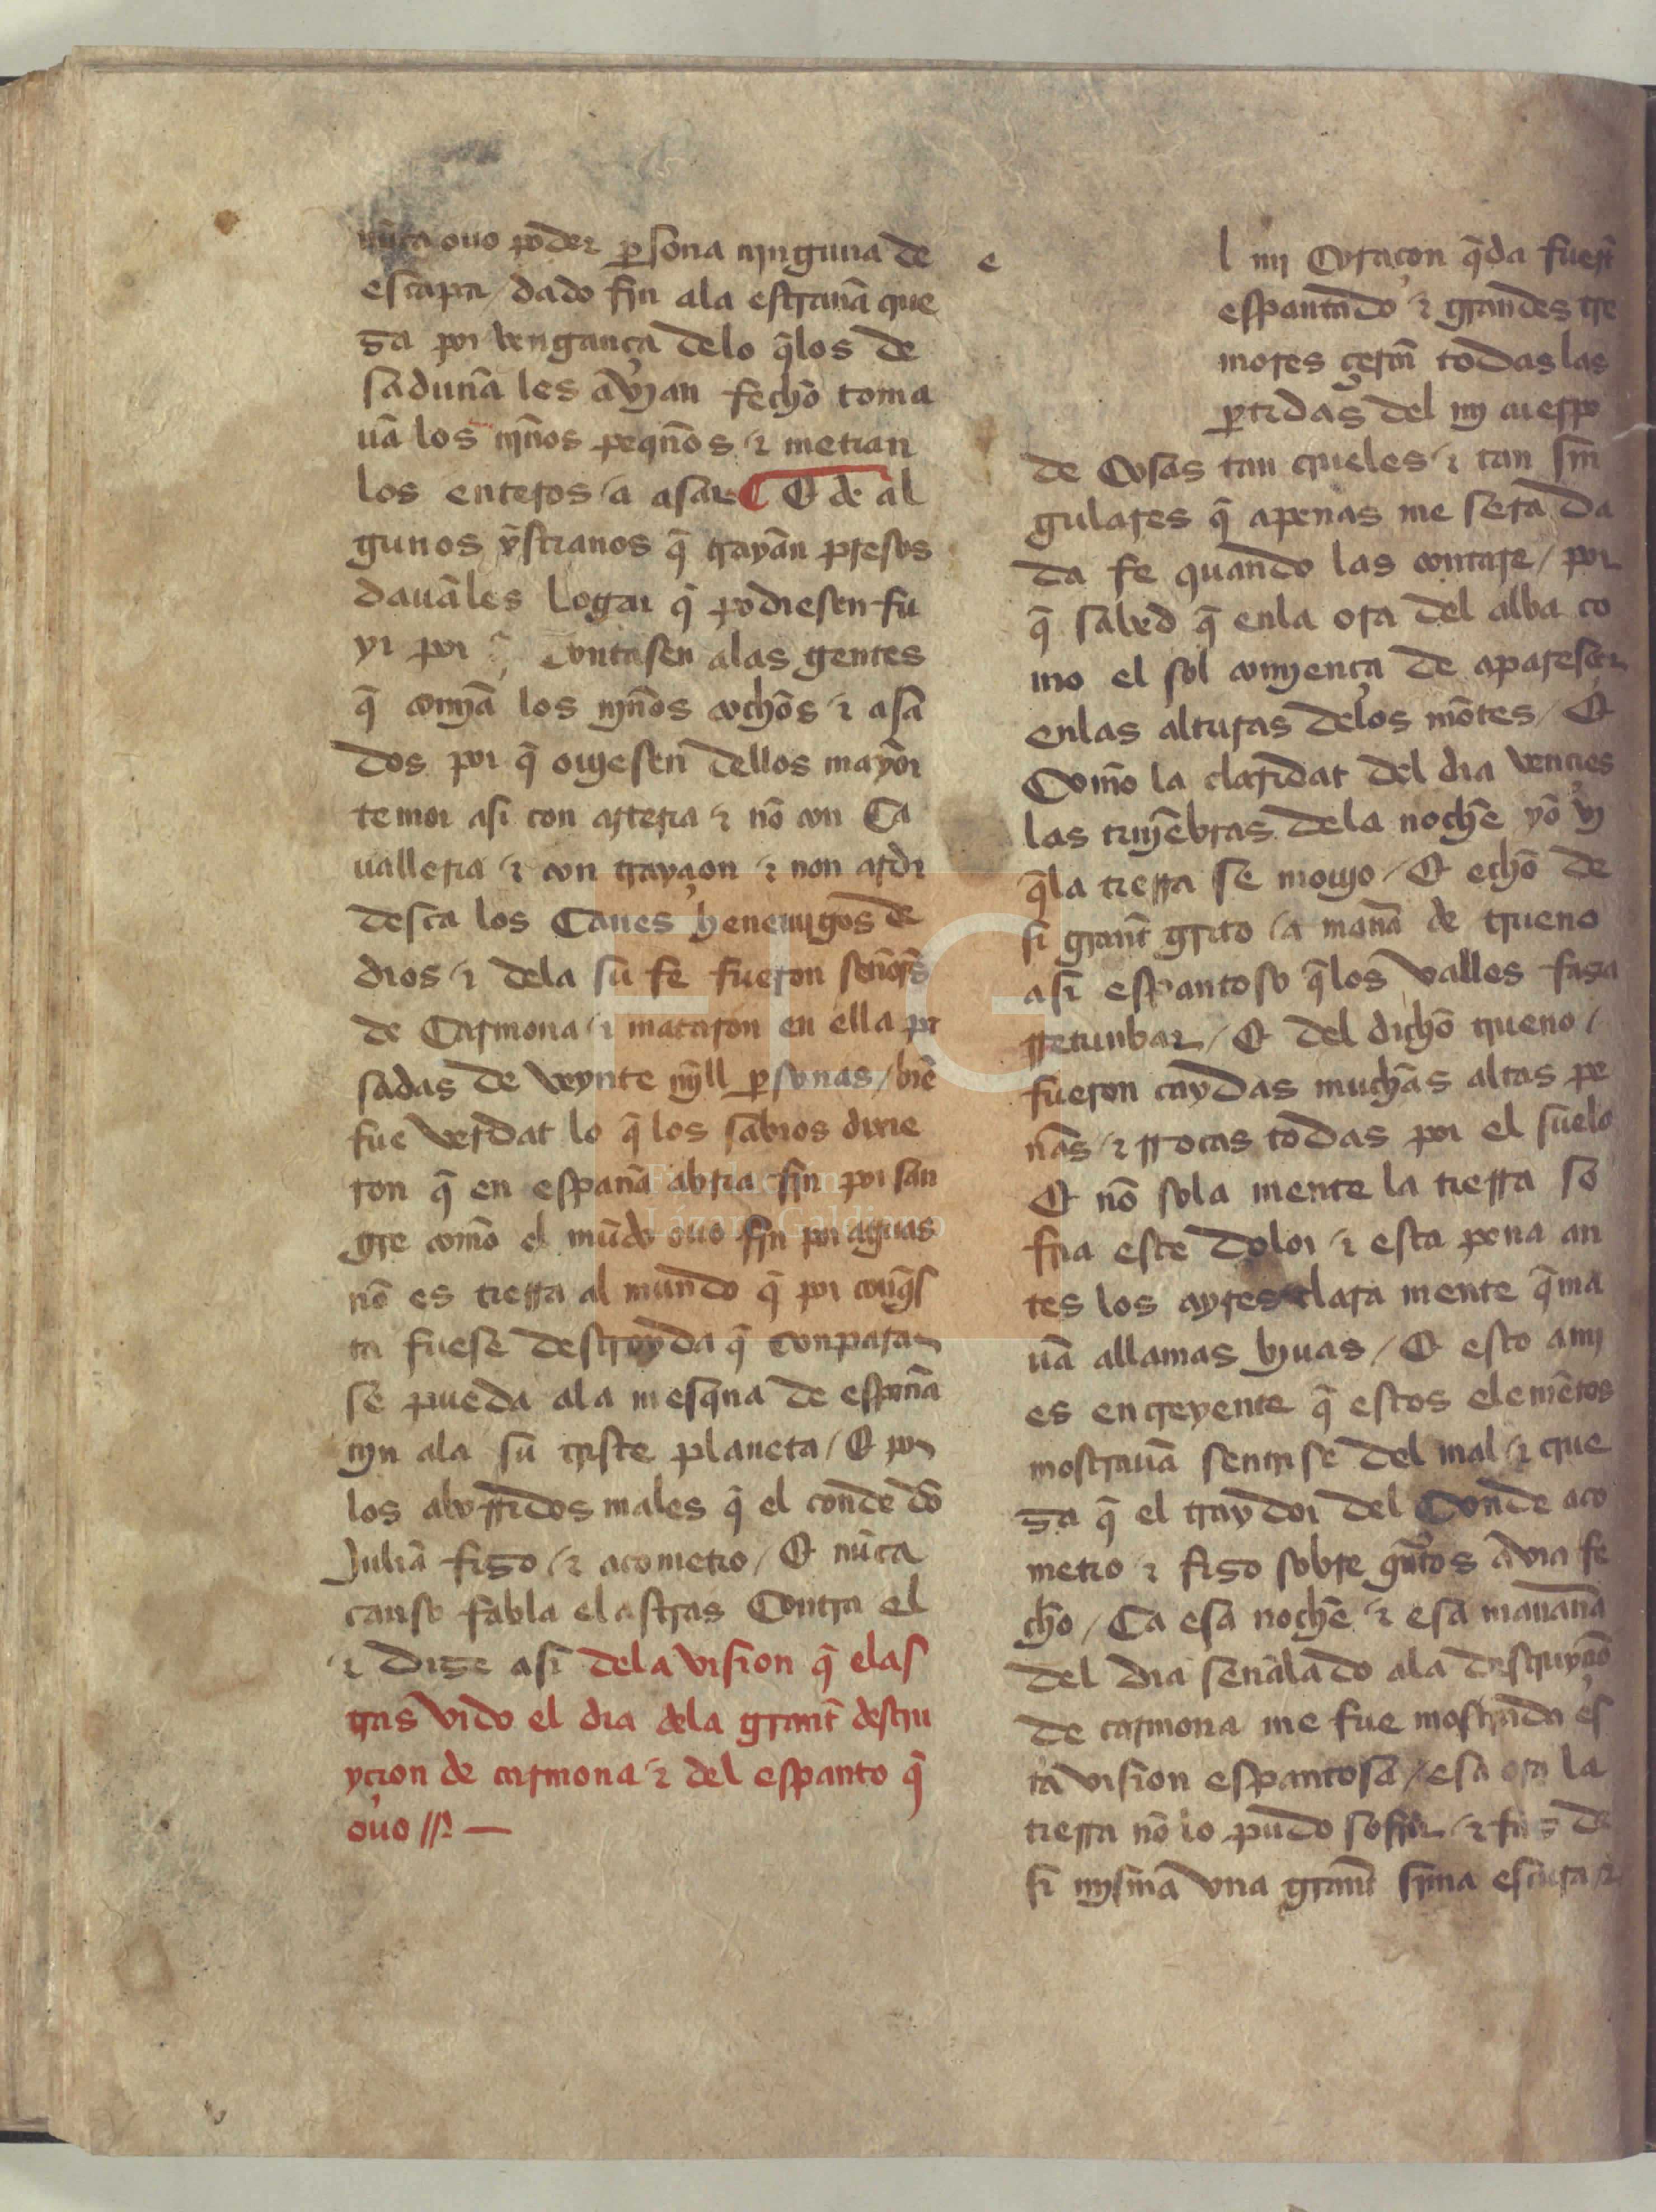 nũca ouo poder ꝑsona njnguna de
escapar / dado fin ala estranã que
za por vengança delo q̃los de
sadunã les avjan fechõ toma
uã los njños peqños ⁊ metian
los enteros / a asar ¶ Et de al
gunos xp̃stianos q̃ trayãn presos
dauãles logar q̃ podiesen fu
yr por q̃ contasen alas gentes
q̃ comjã los njños cochõs ⁊ asa
dos por q̃ oujesen dellos mayor
temor asi con arteria ⁊ nõ con ca
ualleria ⁊ con trayçion ⁊ non ardi
desca los canes henemigos de
dios ⁊ dela su fe fueron señors
de Carmona ⁊ mataron en ella pa
sadas de veynte mjll ꝑsonas / biẽ
fue verdat lo q̃ los sabios dixie
ron q̃ en españa abria fin por san
gre como el mũdo ouo fin por aguas
nõ es tierra al mundo q̃ por conq̃s
ta fuese destroyda q̃ conparar
se pueda ala mesqna de españa
njn ala su triste planeta / Et por
los aborridos males q̃ el conde dõ
Juliã fizo / ⁊ acometio / Et nũca
canso fabla elastras contra el
⁊ dize asi dela vision q̃ elas
tras vido el dia dela grant destru
yçion de carmona ⁊ del espanto q̃
ouo
e l mj coraçon q̃da fuert
espantado ⁊ grandes tre
mores çercan todas las
ꝑtidas del mj cuerpo
de cosas tan crueles ⁊ tan sin
gulares q̃ apenas me sera da
da fe quando las contare / por
q̃ sabed q̃ enla ora del alba co
mo el sol comjença de aparesçer
enlas alturas delos mõtes / Et
Como la claridat del dia vençies
las tinjẽbras dela nochẽ yo vj
q̃la tierra se moujo / Et echõ de
si grant grito / a manã de trueno
asi espantoso q̃los valles faza
rretunbar / Et del dichõ trueno /
fueron caydas muchãs altas pe
nãs ⁊ rrocas todas por el suelo
Et nõ sola mente la tierra so
fria este dolor ⁊ esta pena an
tes los ayres clara mente q̃ma
uã allamas bjuas / Et esto amj
es encreyente q̃ estos elemẽtos
mostrauã sentirse del mal ⁊ crue
za q̃ el traydor del Conde aco
metio ⁊ fizo sobre quãtos avia fe
chõ / Ca esa nochẽ ⁊ esa mañana
del dia señalado ala destruyçiõ
de carmona me fue mostrada es
ta vision espantosa / esa ora la
tierra nõ lo pudo sofrir ⁊ fizo de
si mjsmã vna grant sima escura ⁊